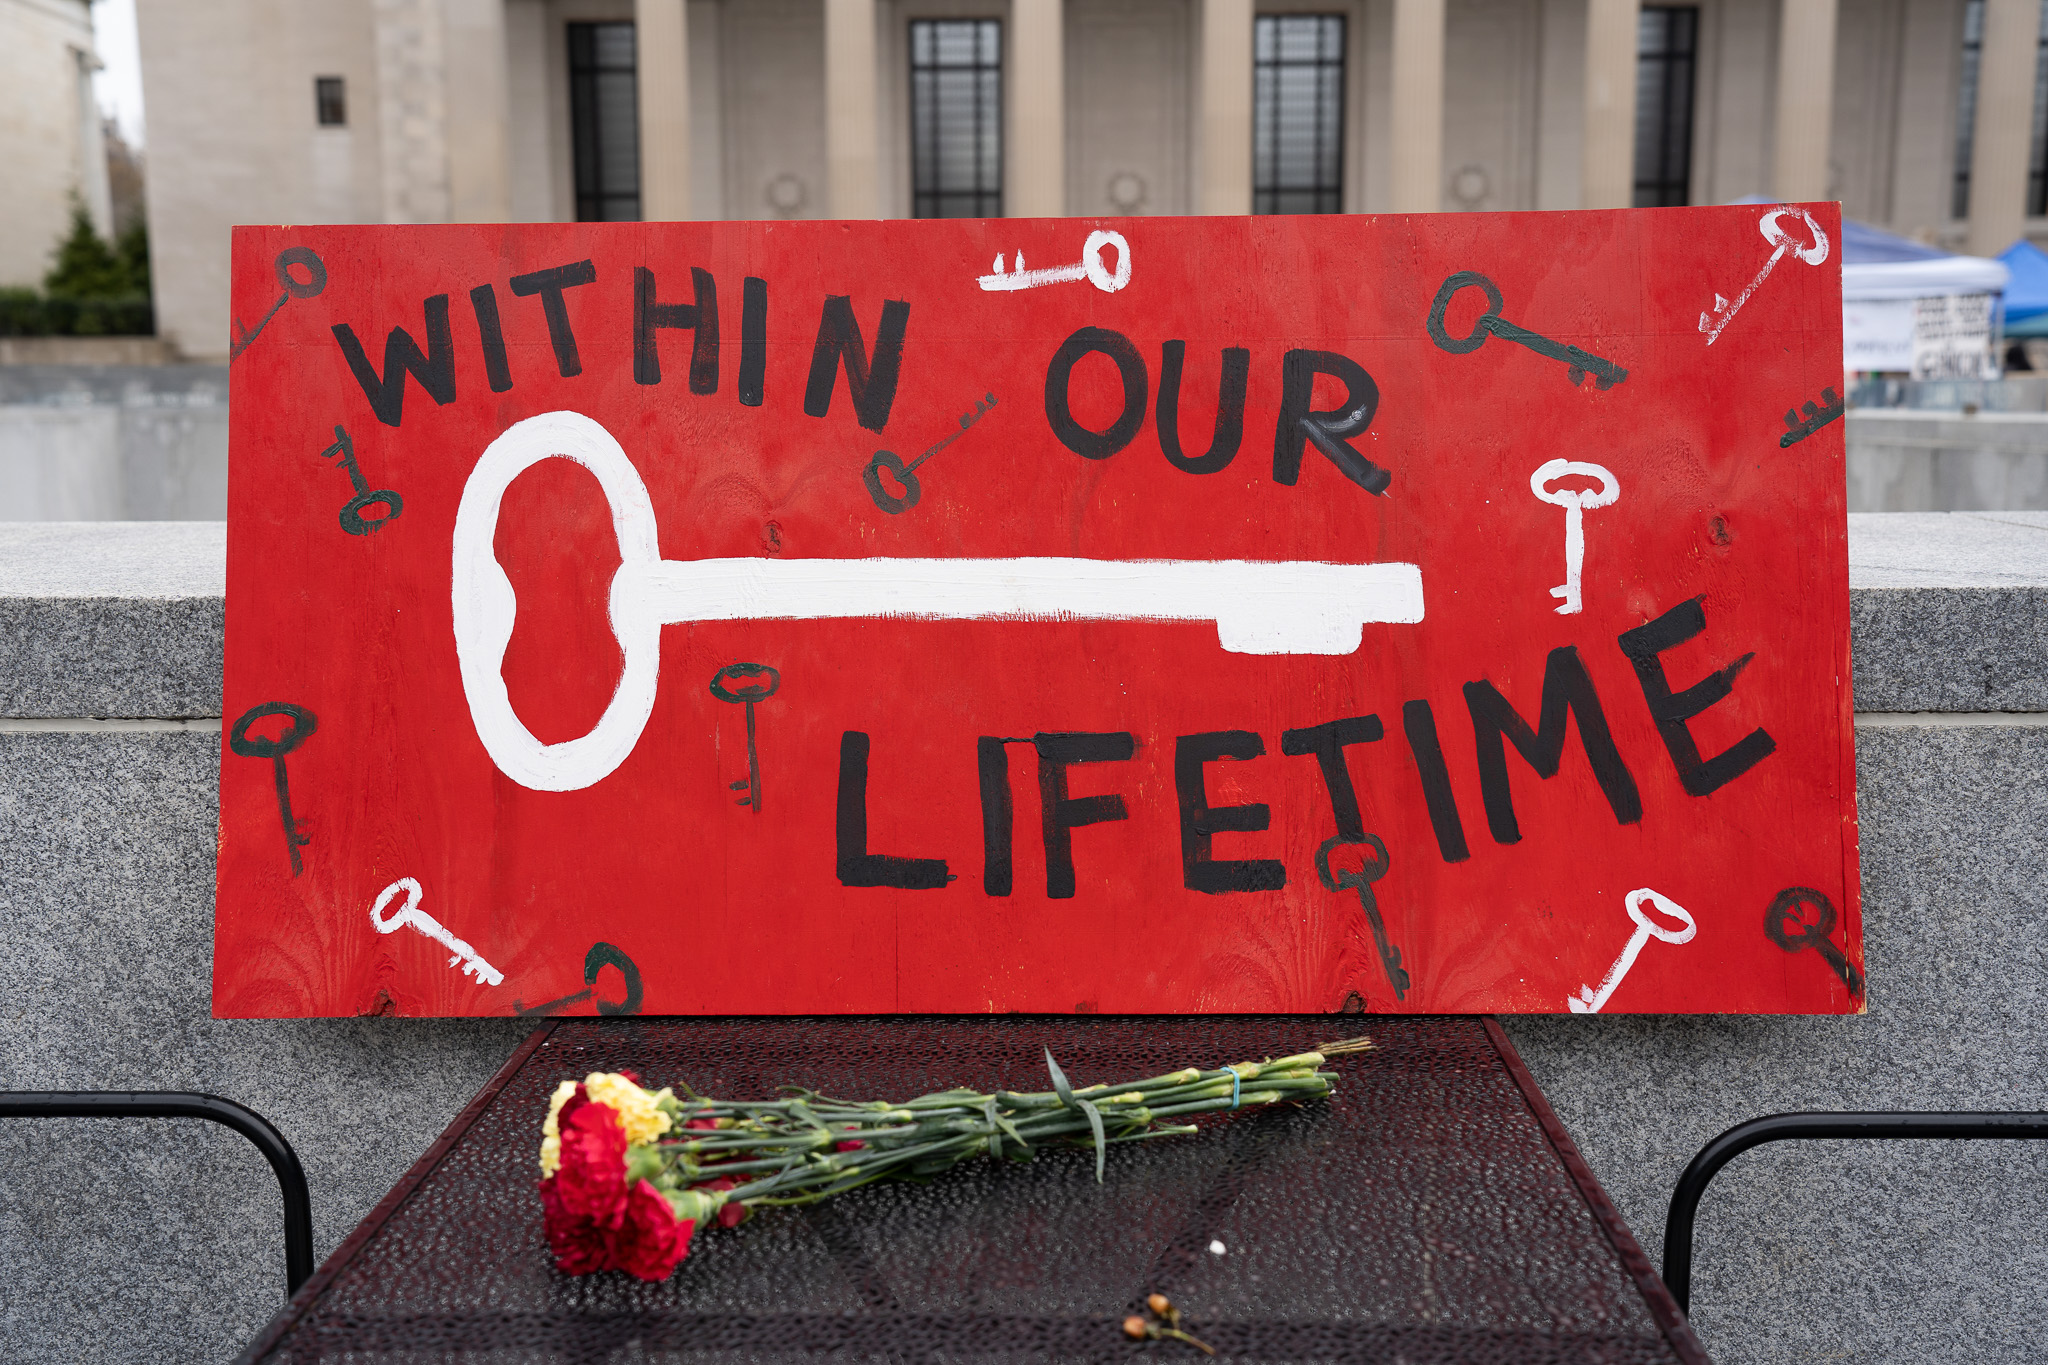 WITHIN OUR
LIFETIME